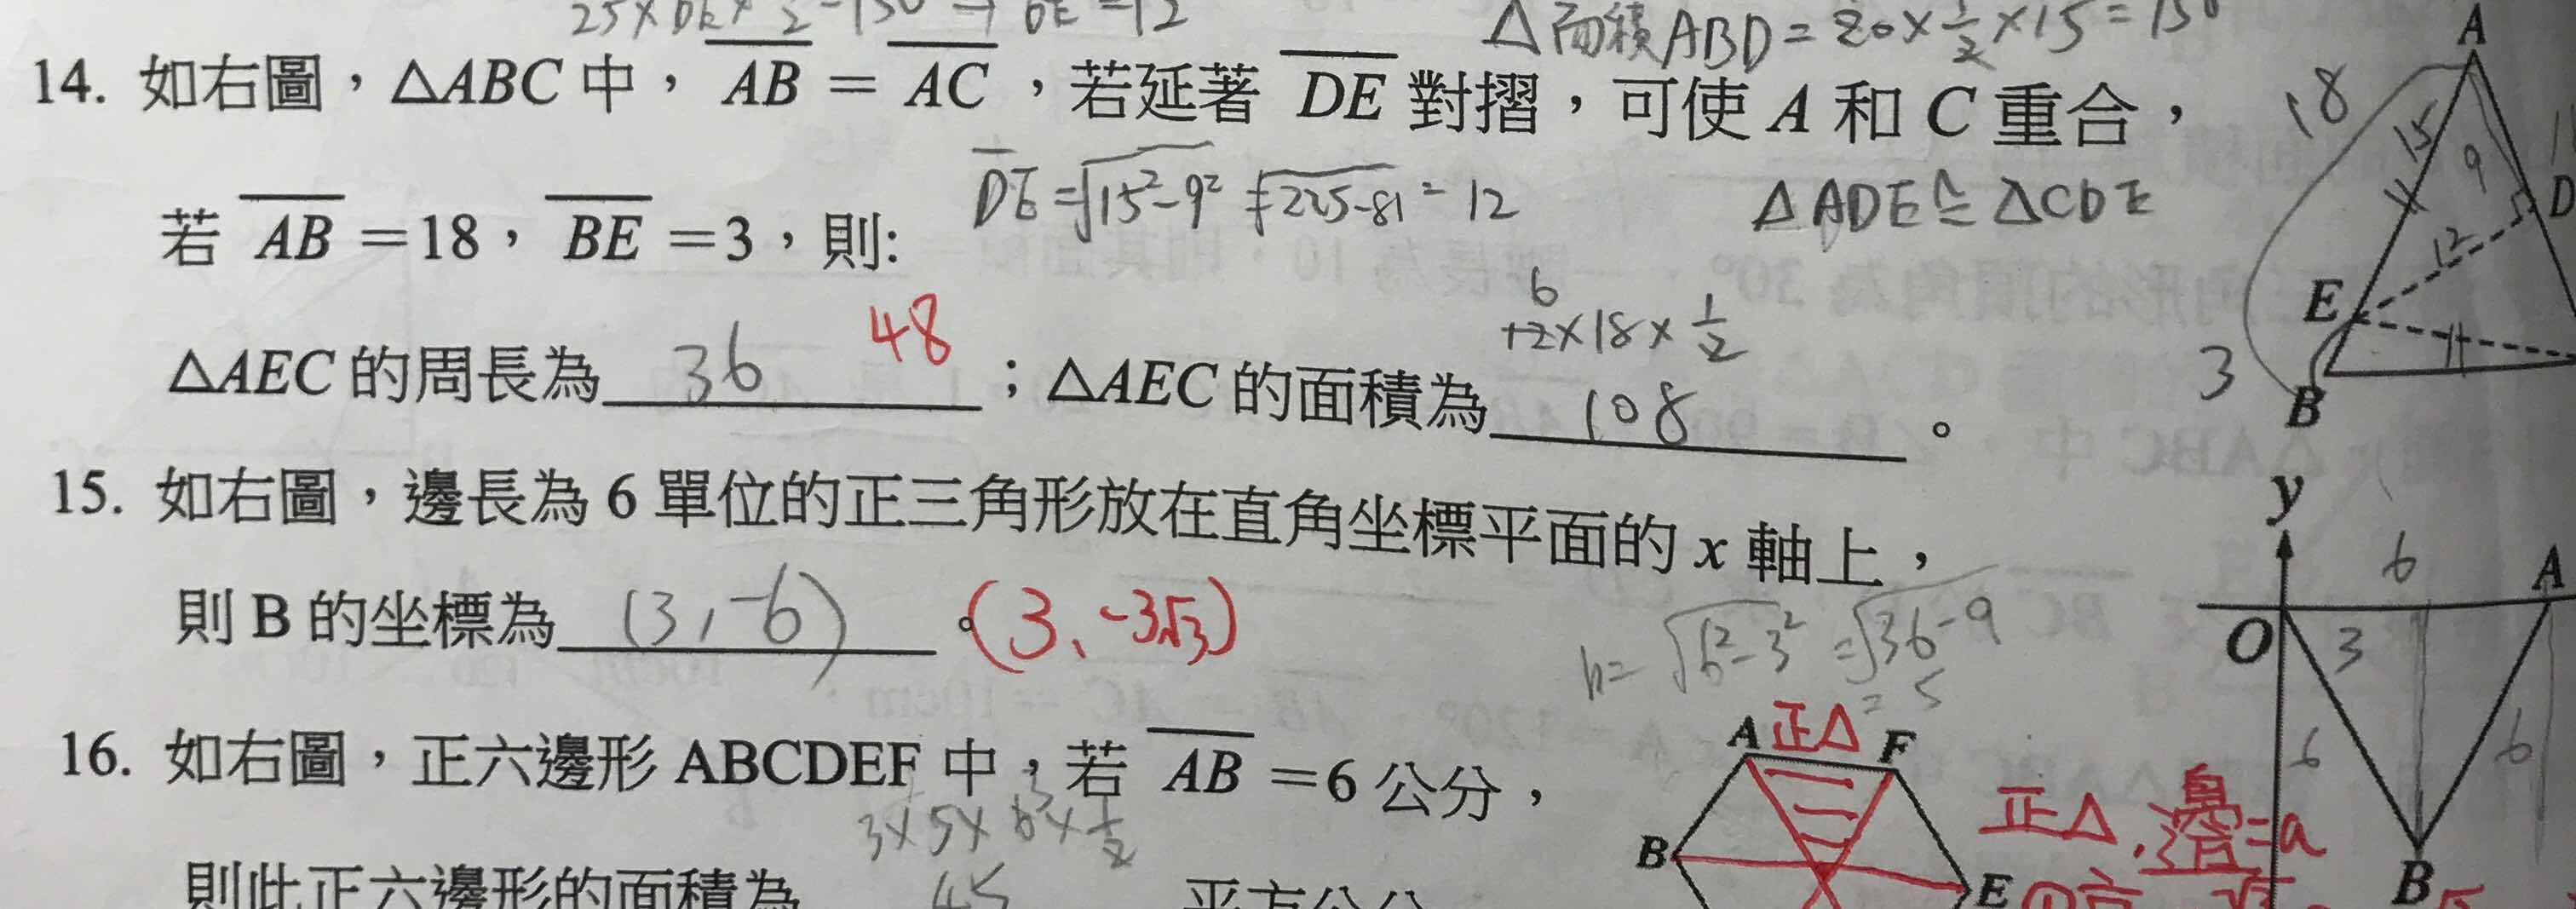 25×DE×1/2=150 → DE=12
△面積ABD=20×1/2×15=150
14. 如右圖，△ABC 中，AB = AC，若延著 DE 對摺，可使 A 和 C 重合，
DE=√15²-9² =√225-81=12
△ADE≅△CDE
若 AB =18，BE =3，則:
6
12×18×1/2
△AEC 的周長為 36 48 ；△AEC 的面積為 108 。
A
18
15
9
D
12
E
3
B
15. 如右圖，邊長為 6 單位的正三角形放在直角坐標平面的 x 軸上，
則 B 的坐標為 (3,-6) 。(3、-3√3)
h=√6²-3² =√36-9
=5
y
6
A
O
3
6
6
B
16. 如右圖，正六邊形 ABCDEF 中，若 AB =6 公分，
3×5×6×1/2
則此正六邊形的面積為 45 平方公分
A 正△ F
B
E
正△,邊=a